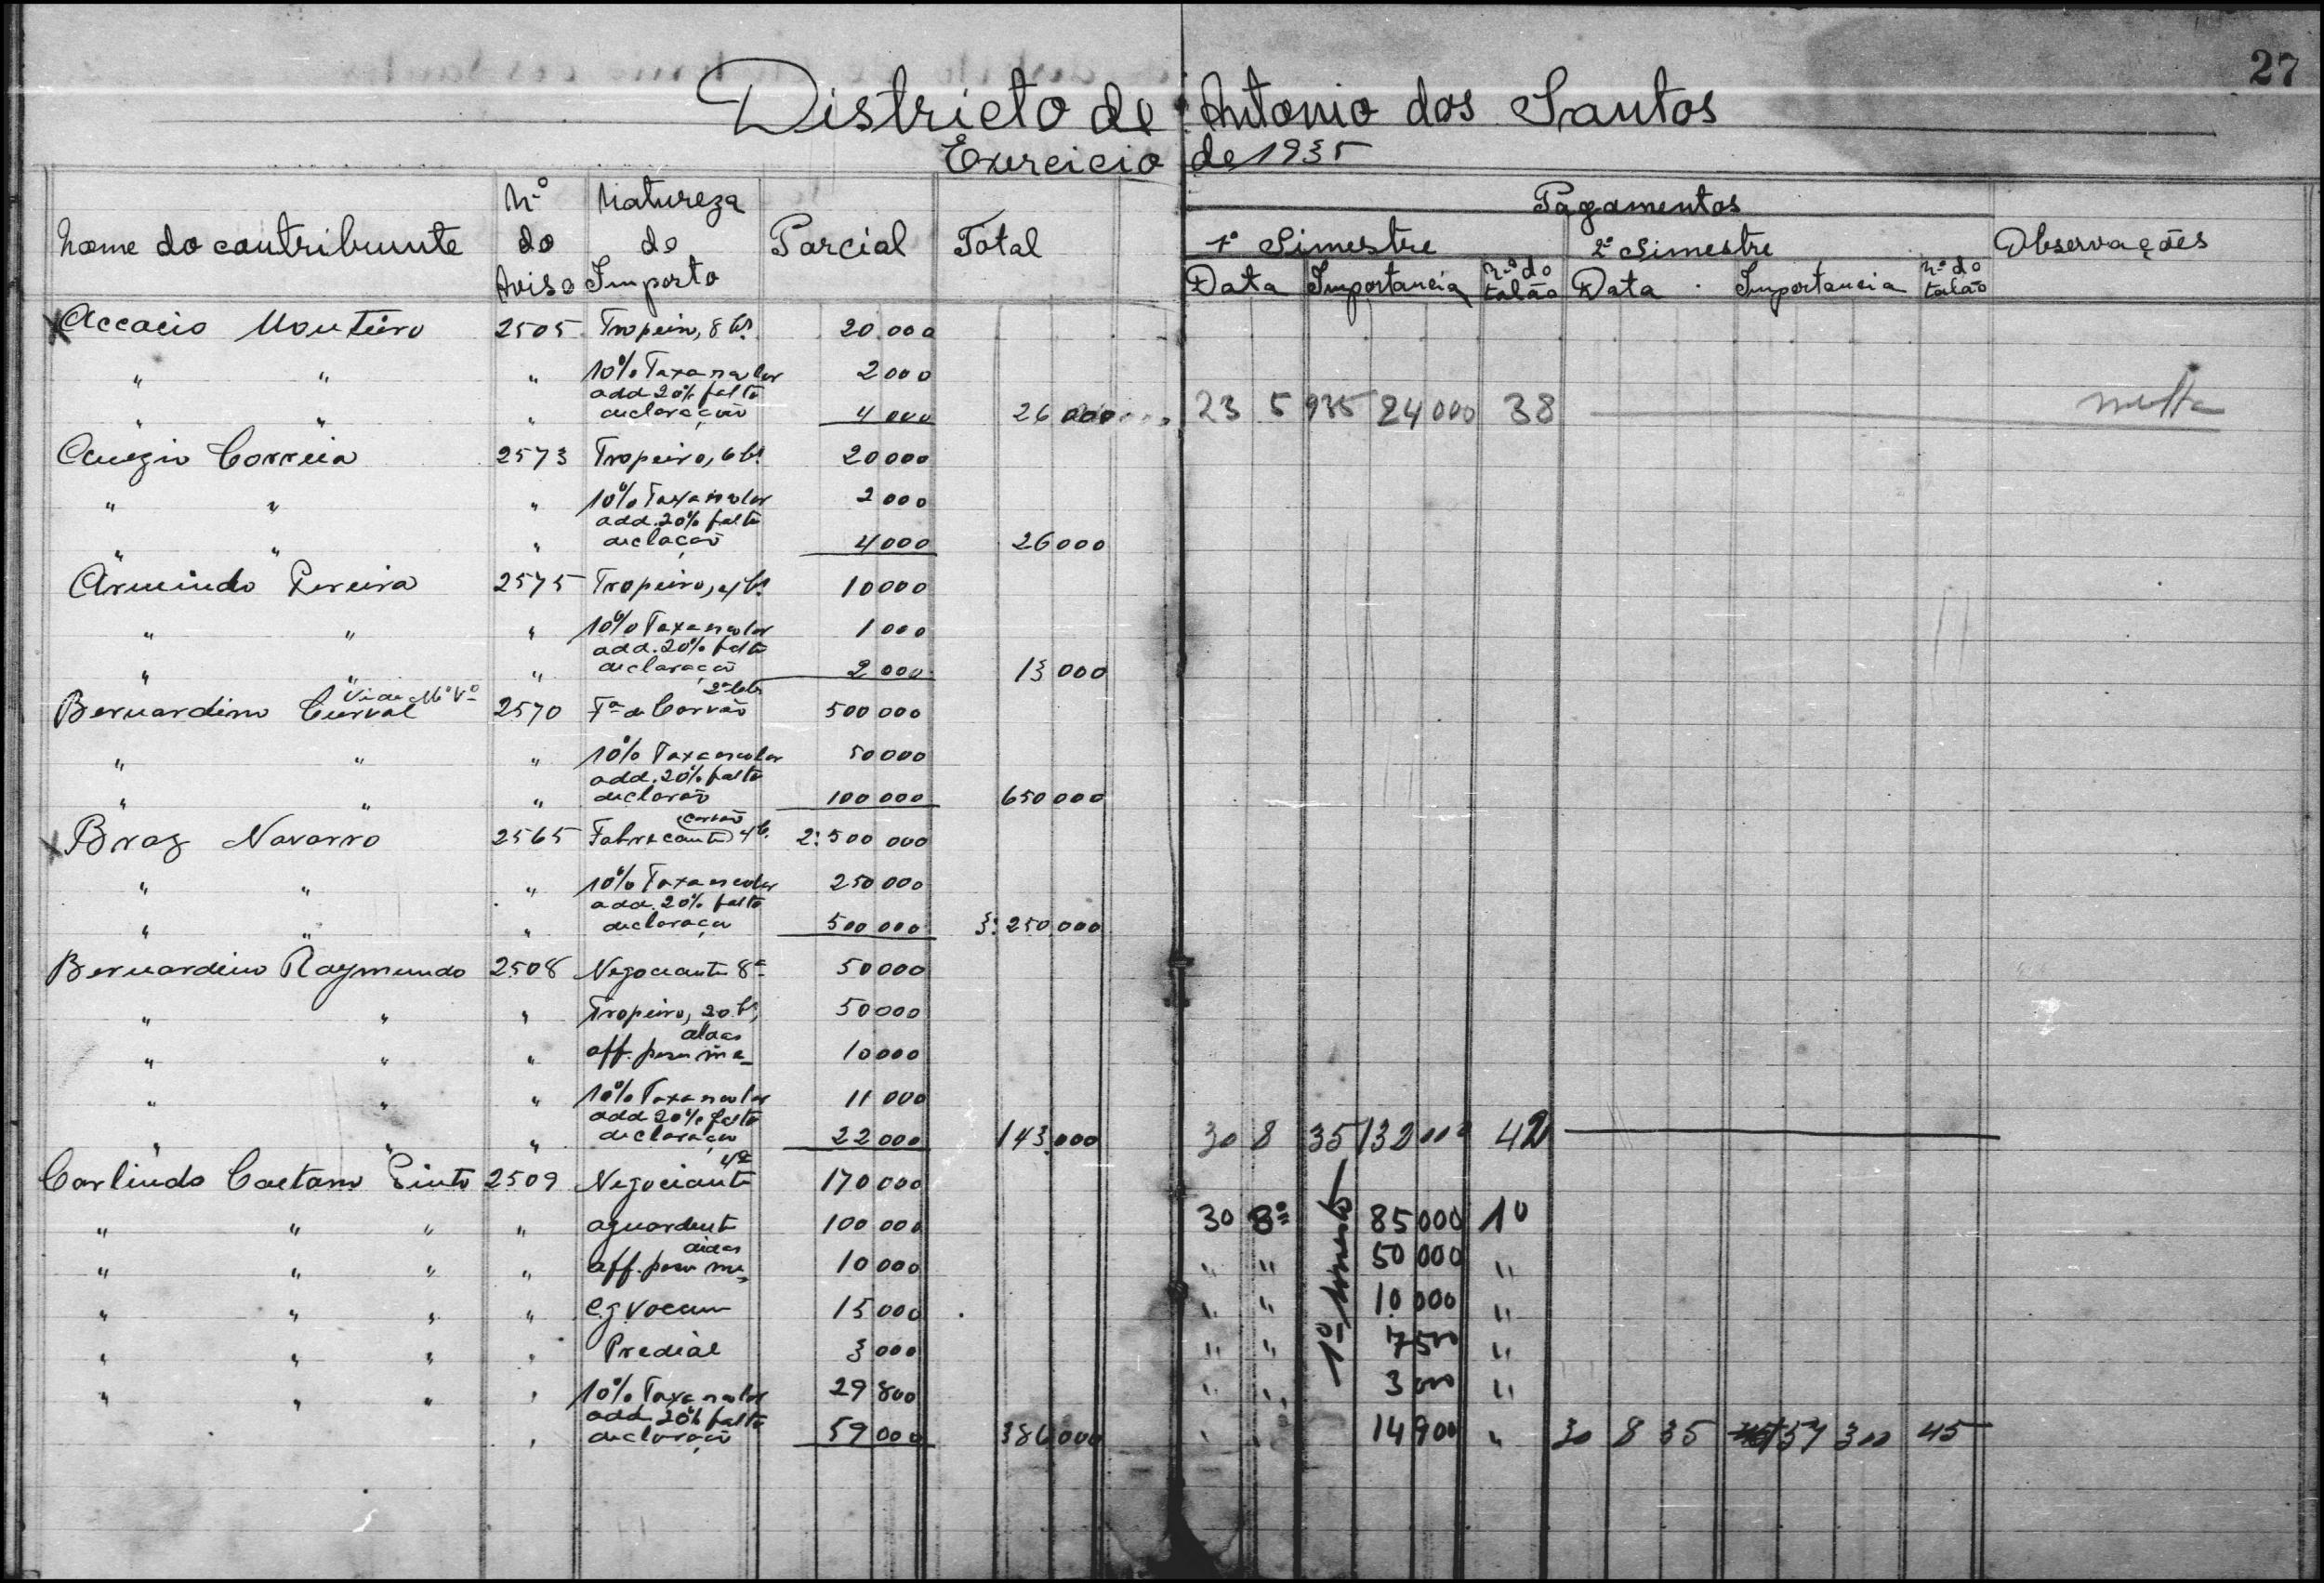 27
Districto de Antonio dos Santos
Exercicio de 1935
Nome do contribuinte Nº do Aviso Natureza do Imposto Parcial Total Pagamentos Observações
1º Simestre 2º Simestre
Data Importancia Nº do talão Data Importancia Nº do talão
Accacio Monteiro 2505 Tropeiro, 8 bs. 20.000
" " " 10% Taxa escolar 2000
add 20% falta
" " " declaração 4000 26000 23 5 935 24000 38 multa
Correia 2573 Tropeiro, 6 bs. 20000
" " " 10% Taxa escolar 2000
add. 20% falta
" " " declação 4000 26000
Armindo Pereira 2575 Tropeiro, 4 bs. 10000
" " " 10% Taxa escolar 1000
add. 20% falta
" " " declaração 2000 13000
Bernardino 2570 Fª de Carvão 500000
" " " 10% Taxa escolar 50000
add. 20% falta
" " " declarão 100000 650000
carvão
X Braz Navarro 2565 Fabricante 2:500 000
" " " 10% Taxa escolar 250000
add. 20% falta
" " " declaração 500000 3:250.000
Bernardino Raymundo 2508 Negociante 8ª 50000
" " " Tropeiro, 20 bs, 50000
" " " aff. peso me 10000
" " " 10% Taxa escolar 11000
add 20% falta
" " " declaração 22000 143.000 30 8 35 132000 42
4ª
Carlindo Caetano Pinto 2509 Negociante 170000
" " " " aguardente 100 000 30 3º 85000 10
" " " " aff. peso me 10000 " " 50 000 "
" " " " 15000 " " 10.000 "
" " " " Predial 3000 " " 7500 "
" " " " 10% Taxa escolar 29800 " " 3000 "
add. 20% falta
" declaração 59000 386000 " " 14900 " 30 8 35 157 300 45